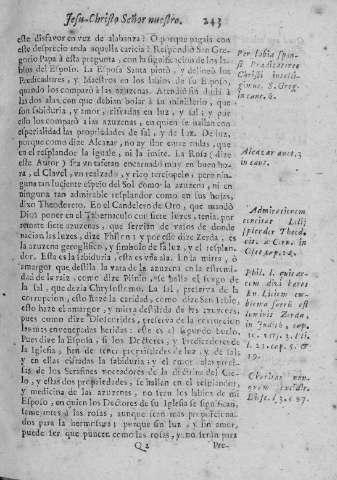 Jesu-Christo Señor nuestro. 243
este disfavor en vez de alabança? O porque pagais con
este desprecio toda aquella caricia? Respondiò San Gre-
gorio Papa à esta pregunta, con la significacion de los la-
bios del Esposo. La Esposa Santa pintò, y delineò los
Predicadores, y Maestros en los labios de su Esposo,
quando los comparò à las azuzenas. Atendiò sin duda à
las dos alas, con que debian bolar à su ministerio, que
son sabiduria, y amor, cifradas en luz, y sal; y por
esto los comparò à las azuzenas, en quien se hallan con
especialidad las propriedades de sal, y de luz. De luz,
porque como dize Alcazar, no ay flor entre todas, que
en el resplandor la iguale, ni la imite. La Rosa (dize
este Autor) sea un tafetan encarnado muy en buen ho-
ra, el Clavel, un rizado, y rico terciopelo; pero nin-
guna tan luciente espejo del Sol como la azuzena, ni en
ninguna tan admirable resplandor como en sus hojas,
dixo Theodoreto. En el Candelero de Oro, que mandò
Dios poner en el Tabernaculo con siete luzes, tenia por
remate siete azuzenas, que servian de vasos de donde
nacian las luzes, dize Philon; y por esto dize Zerda, es
la azuzena geroglifico, y simbolo de la luz, y el resplan-
dor. Esta es la sabiduria, esta es una ala. En la mirra, ò
amargor que destila la vara de azuzena en la estremi-
dad de la raiz, como dize Plinio, se halla el riesgo de
la sal, que dezia Chrysostomo. La sal, preserva de la
corrupcion, esto haze la caridad, como dize San Isidro;
esto haze el amargor, y mirra destilada de las azuzenas;
pues como dize Dioscorides, preserva de la corrupcion
las mas envenenadas heridas: este es el segundo buelo.
Pues dize la Esposa, si los Doctores, y Predicadores de
la Iglesia, han de tener propriedades de luz, y de sal,
y en ellas cifradas la sabiduria, y el amor, alas
las de los Serafines voceadores de la doctrina del Cie-
lo, y estas dos propriedades, se hallan en el resplandor,
y medicina de las azuzenas, no sean los labios de mi
Esposo, en quien los Doctores de su Iglesia se significan,
semejantes à las rosas, aunque sean mas proporciona-
dos para la hermosura; porque sin luz, y sin amor,
puede ser que puncen como las rosas, y no seràn para
Q2 Pre-
Per labia spon-
si Prædicatores
Christi intelli-
guntur. S. Greg.
in cant. 4.
Alcazar
in cant.
Admirationem
Lilij
splendor Theod.
Phil.
Zerda,
in Judith, cap.
19.
Charitas